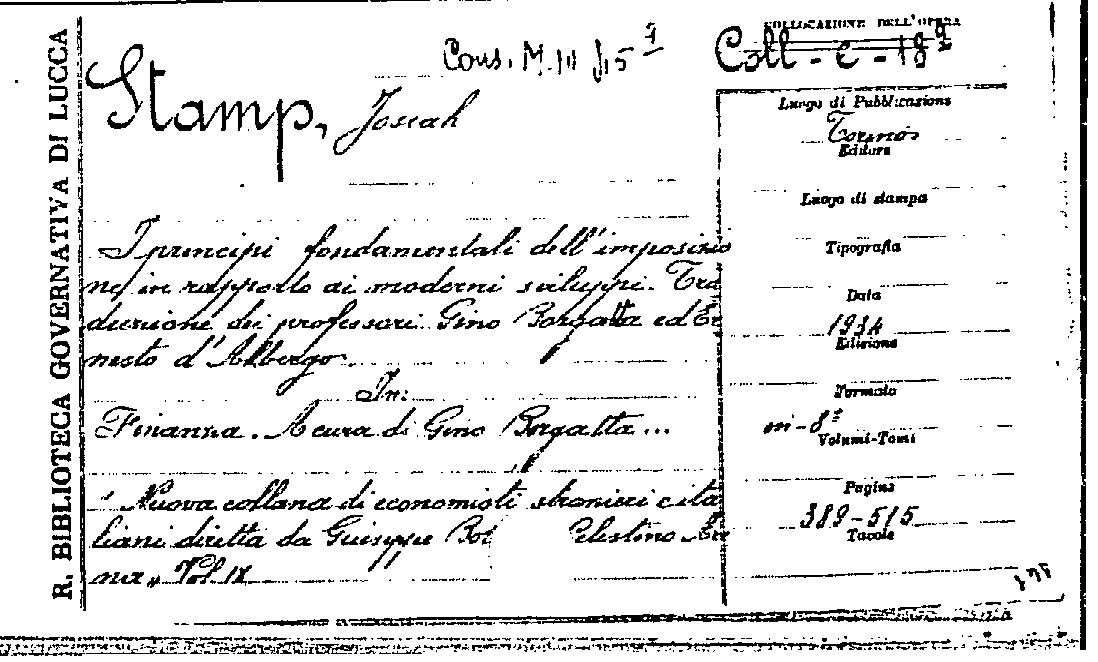 R. BIBLIOTECA GOVERNATIVA DI LUCCA
Cons. M. III
COLLOCAZIONE DELL'OPERA
Coll - c - 18
Stamp, Josiah
Luogo di Pubblicazione
Torino
Editore
Luogo di stampa
I principi fondamentali dell'imposizio
ne in rapporto ai moderni sviluppi. Tra
duzione dei professori Gino Borgatta ed Er
nesto d'Albergo.
Tipografia
Data
1934
Edizione
In:
Finanza. A cura di Gino Borgatta...
Formato
in-8°
Volumi-Tomi
" Nuova collana di economisti stranieri e ita
liani diretta da Giuseppe Bot Celestino Ar
na„ Vol IX
Pagine
389-515
Tavole